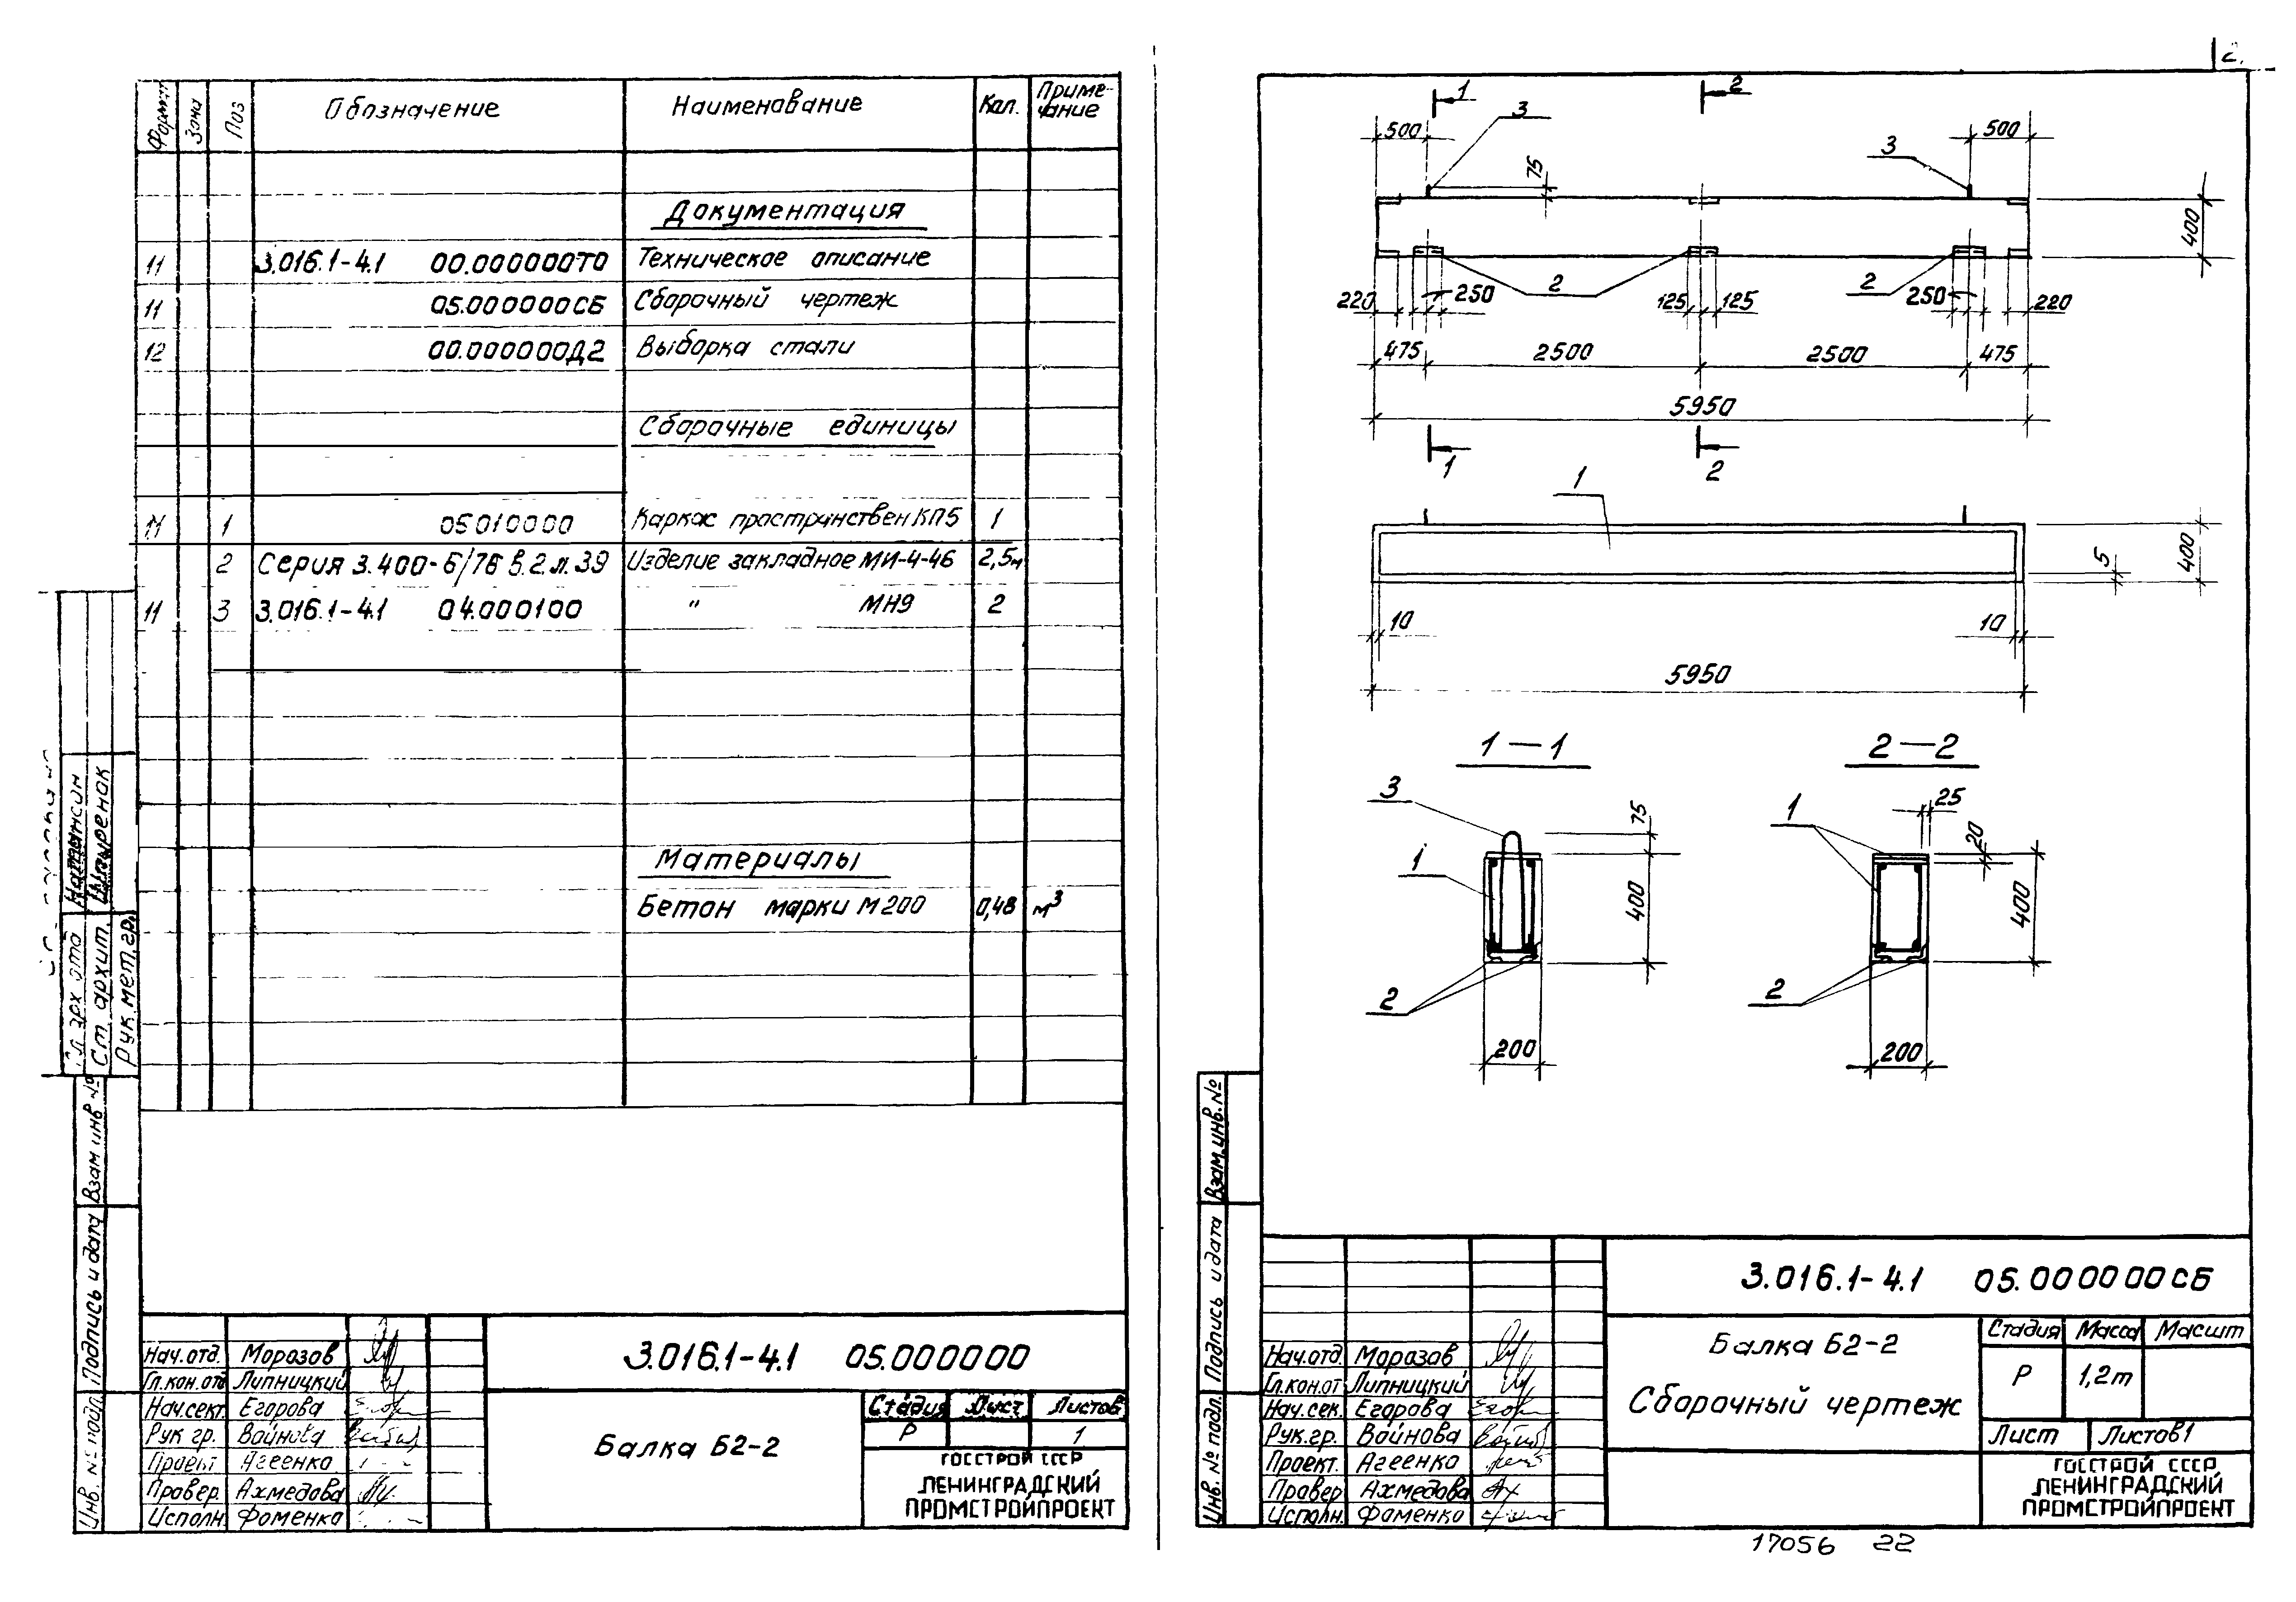 Формат Зона Поз Обозначение Наименование Кол. Приме-чание
Документация
11 3.016.1-4.1 00.000000ТО Техническое описание
11 05.000000СБ Сборочный чертеж
12 00.000000Д2 Выборка стали
Сборочные единицы
11 1 05010000 Каркас пространствен КП5 1
2 Серия 3.400-6/76 в.2 л.39 Изделие закладное МИ-4-46 2,5м
11 3 3.016.1-4.1 04.000100 " МН9 2
Материалы
Бетон марки М200 0,48 м³
Натансон
Штыренок
Гл. арх. отд
Ст. архит.
Рук. мет. гр.
Взам инв №
Подпись и дата
Инв. № подл.
3.016.1-4.1 05.000000
Нач.отд. Морозов
Гл.кон.отд Липницкий
Нач.сект. Егорова
Рук гр. Войнова
Проект Агеенко
Провер. Ахмедова
Исполн. Фоменко
Балка Б2-2
Стадия Лист Листов
Р 1
ГОССТРОЙ СССР
ЛЕНИНГРАДСКИЙ
ПРОМСТРОЙПРОЕКТ
2
1 2
500 3 75 3 500
400
2 2
220 250 125 125 250 220
475 2500 2500 475
5950
1 2
1
5 400
10 10
5950
1—1
3 75
1 400
2
200
2—2
1 25
20
400
2
200
Взам.инв.№
Подпись и дата
Инв. № подл.
3.016.1-4.1 05.000000СБ
Нач.отд. Морозов
Гл.кон.от Липницкий
Нач.сек. Егорова
Рук.гр. Войнова
Проект. Агеенко
Провер Ахмедова
Исполн. Фоменко
Балка Б2-2
Сборочный чертеж
Стадия Масса Масшт
Р 1,2т
Лист Листов 1
ГОССТРОЙ СССР
ЛЕНИНГРАДСКИЙ
ПРОМСТРОЙПРОЕКТ
17056 22